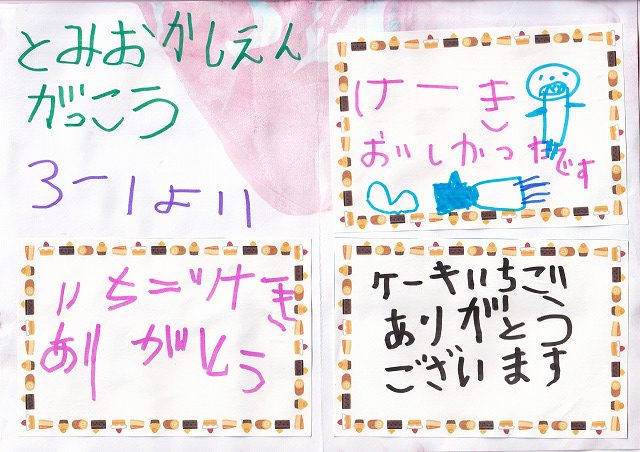 とみおかしえん
がっこう
3-1より
けーき
おいしかったです
いちごけーき
ありがとう
ケーキいちご
ありがとう
ございます